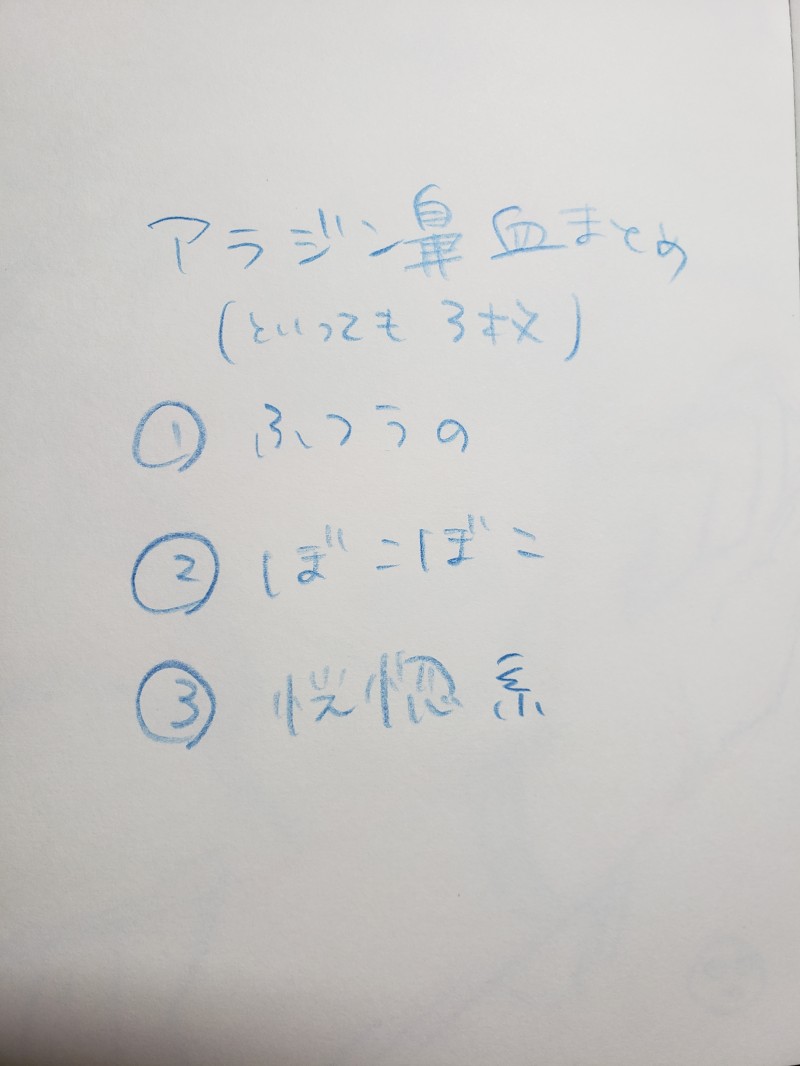 アラジン鼻血まとめ
(といっても3枚)
① ふつうの
② ぼこぼこ
③ 恍惚系